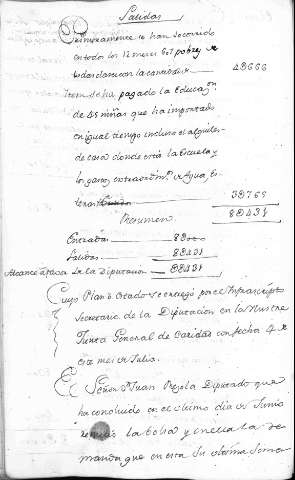 Salidas
Primeramente se han socorrido
en todos los 12 meses 607 pobres de
todas clases con la cantidad de 48666
Item se ha pagado la Educaon.
de 55 niñas que ha importado
en igual tiempo incluso el alquiler
de casa donde está la Escuela y
los gastos de Agua, Es-
teras 38765
88431
Resumen
Entradas 88000
Salidas 88431
Alcance a favor de la Diputacion 88431
Cuyo Plan o Estado se entregó por el Infrascripto
Secretario de la Diputacion en la Nuestra
Junta General de Caridad con fecha 4 de
este mes de Julio.
El Señor Dn. Juan Diputado que
ha concluido en el ultimo dia de Junio
la bolsa y cuenta la de-
manda que en esta su ultima Sema